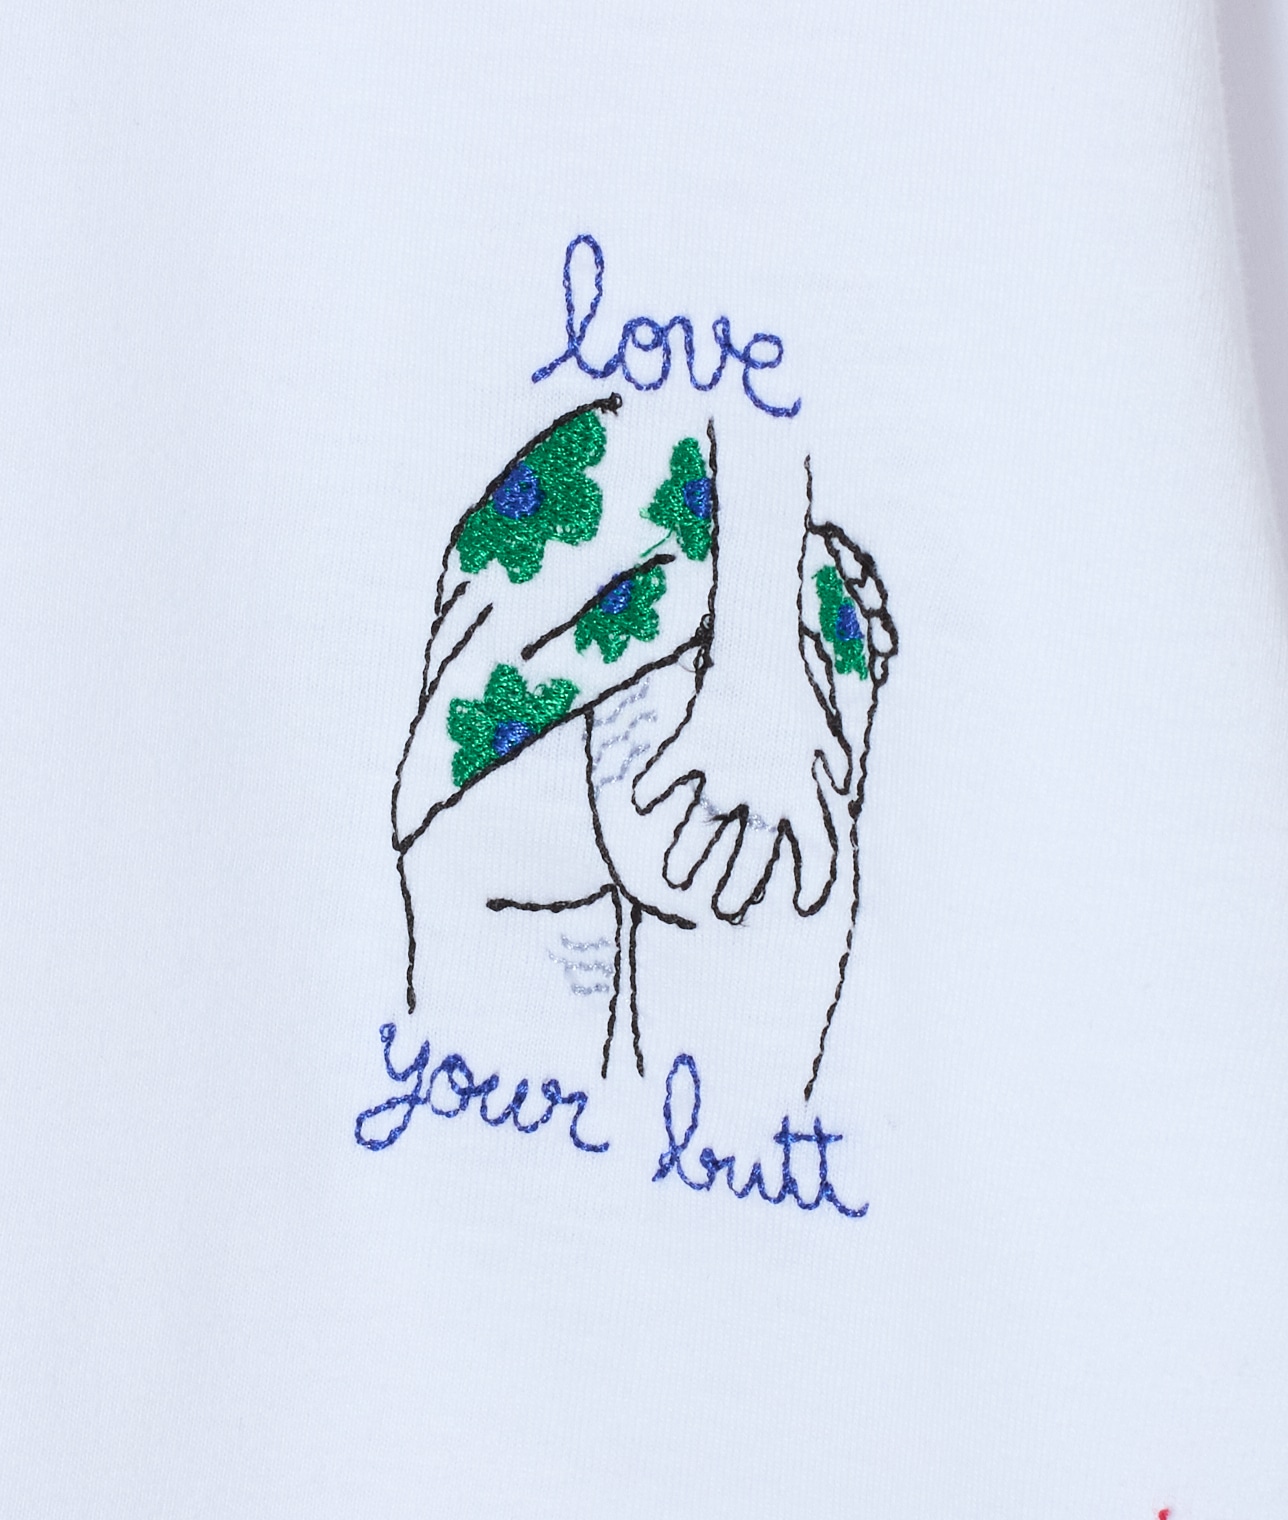 love
your butt